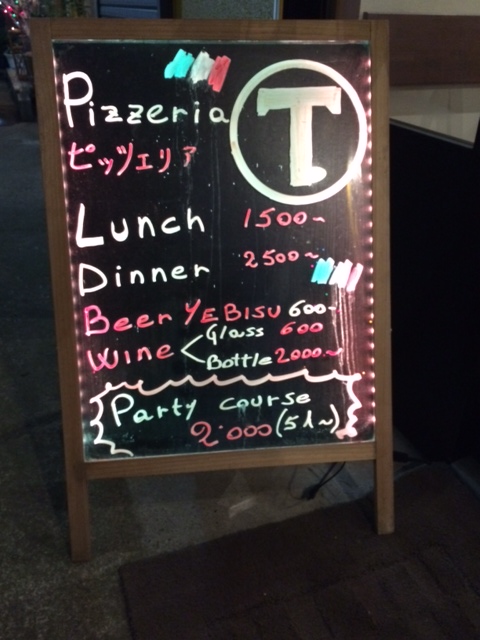 Pizzeria
T
ピッツェリア
Lunch 1500~
Dinner 2500~
Beer YEBISU 600~
Wine < Glass 600
Bottle 2000~
Party course
2.000 (5人~)